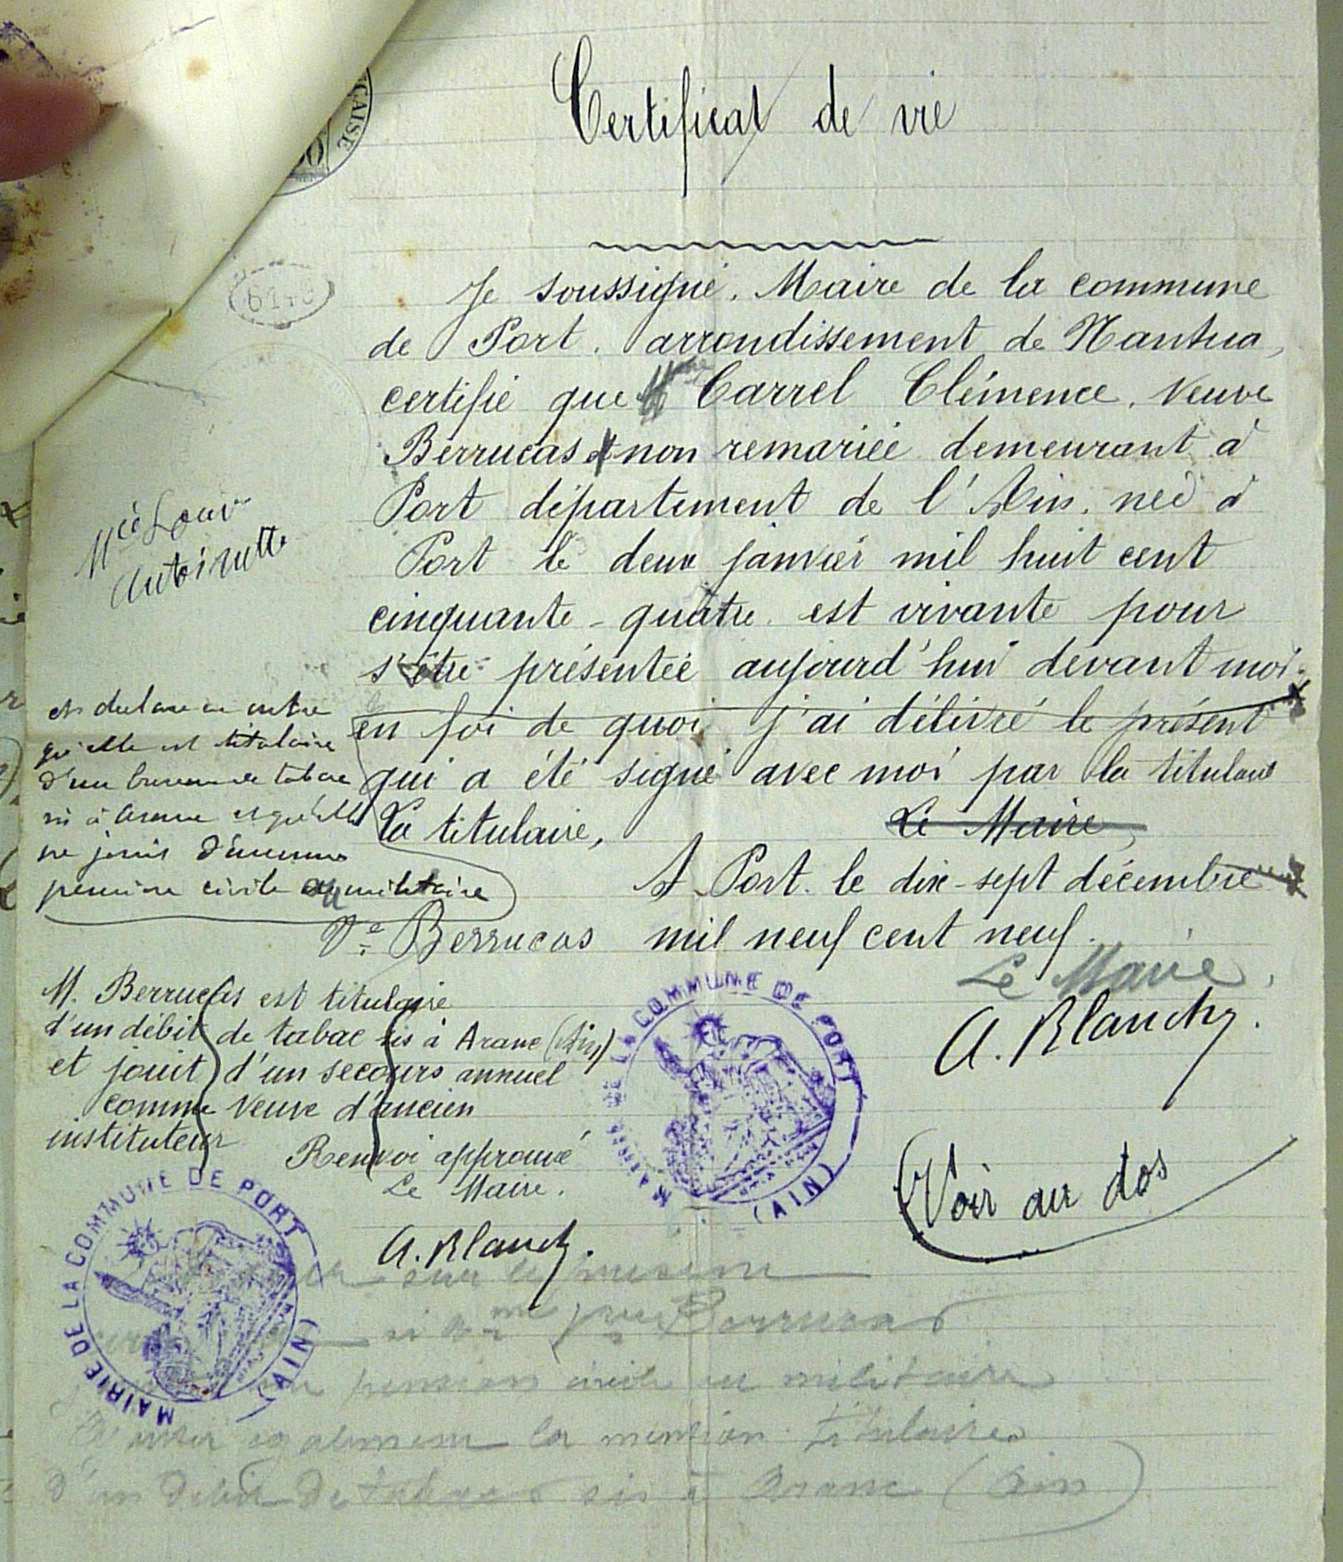 Certificat de vie
Je soussigné, Maire de la commune
de Port, arrondissement de Nantua,
certifie que Mme Carrel Clémence, Veuve
Berrucas non remariée demeurant à
Port département de l'Ain, née à
Port le deux janvier mil huit cent
cinquante-quatre est vivante pour
s'être présentée aujourd'hui devant moi
en foi de quoi j'ai délivré le présent
qui a été signé avec moi par la titulaire
La titulaire,
Le Maire,
A Port le dix-sept décembre
mil neuf cent neuf.
Ve Berrucas
Le Maire,
A. Blanchy.
Antoinette
et déclare en outre
qu'elle est titulaire
d'un bureau de tabac
sis à Aranc et qu'elle
ne jouit d'aucune
pension civile ou militaire
M. Berrucas est titulaire
d'un débit de tabac sis à Aranc (Ain)
et jouit d'un secours annuel
comme veuve d'ancien
instituteur
Renvoi approuvé
Le Maire.
A. Blanchy.
MAIRIE DE LA COMMUNE DE PORT (AIN)
MAIRIE DE LA COMMUNE DE PORT (AIN)
Voir au dos
sur le
si Mme Berrucas
pension civile ou militaire
également la mention titulaire
d'un débit de tabacs sis à Aranc (Ain)